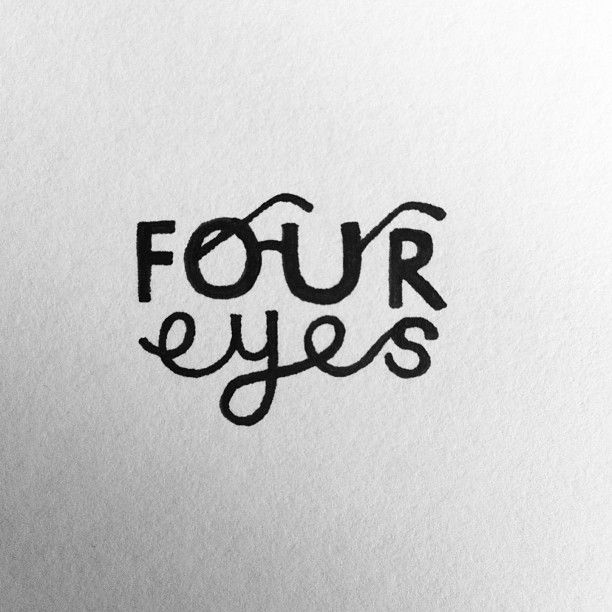 FOUR
eyes